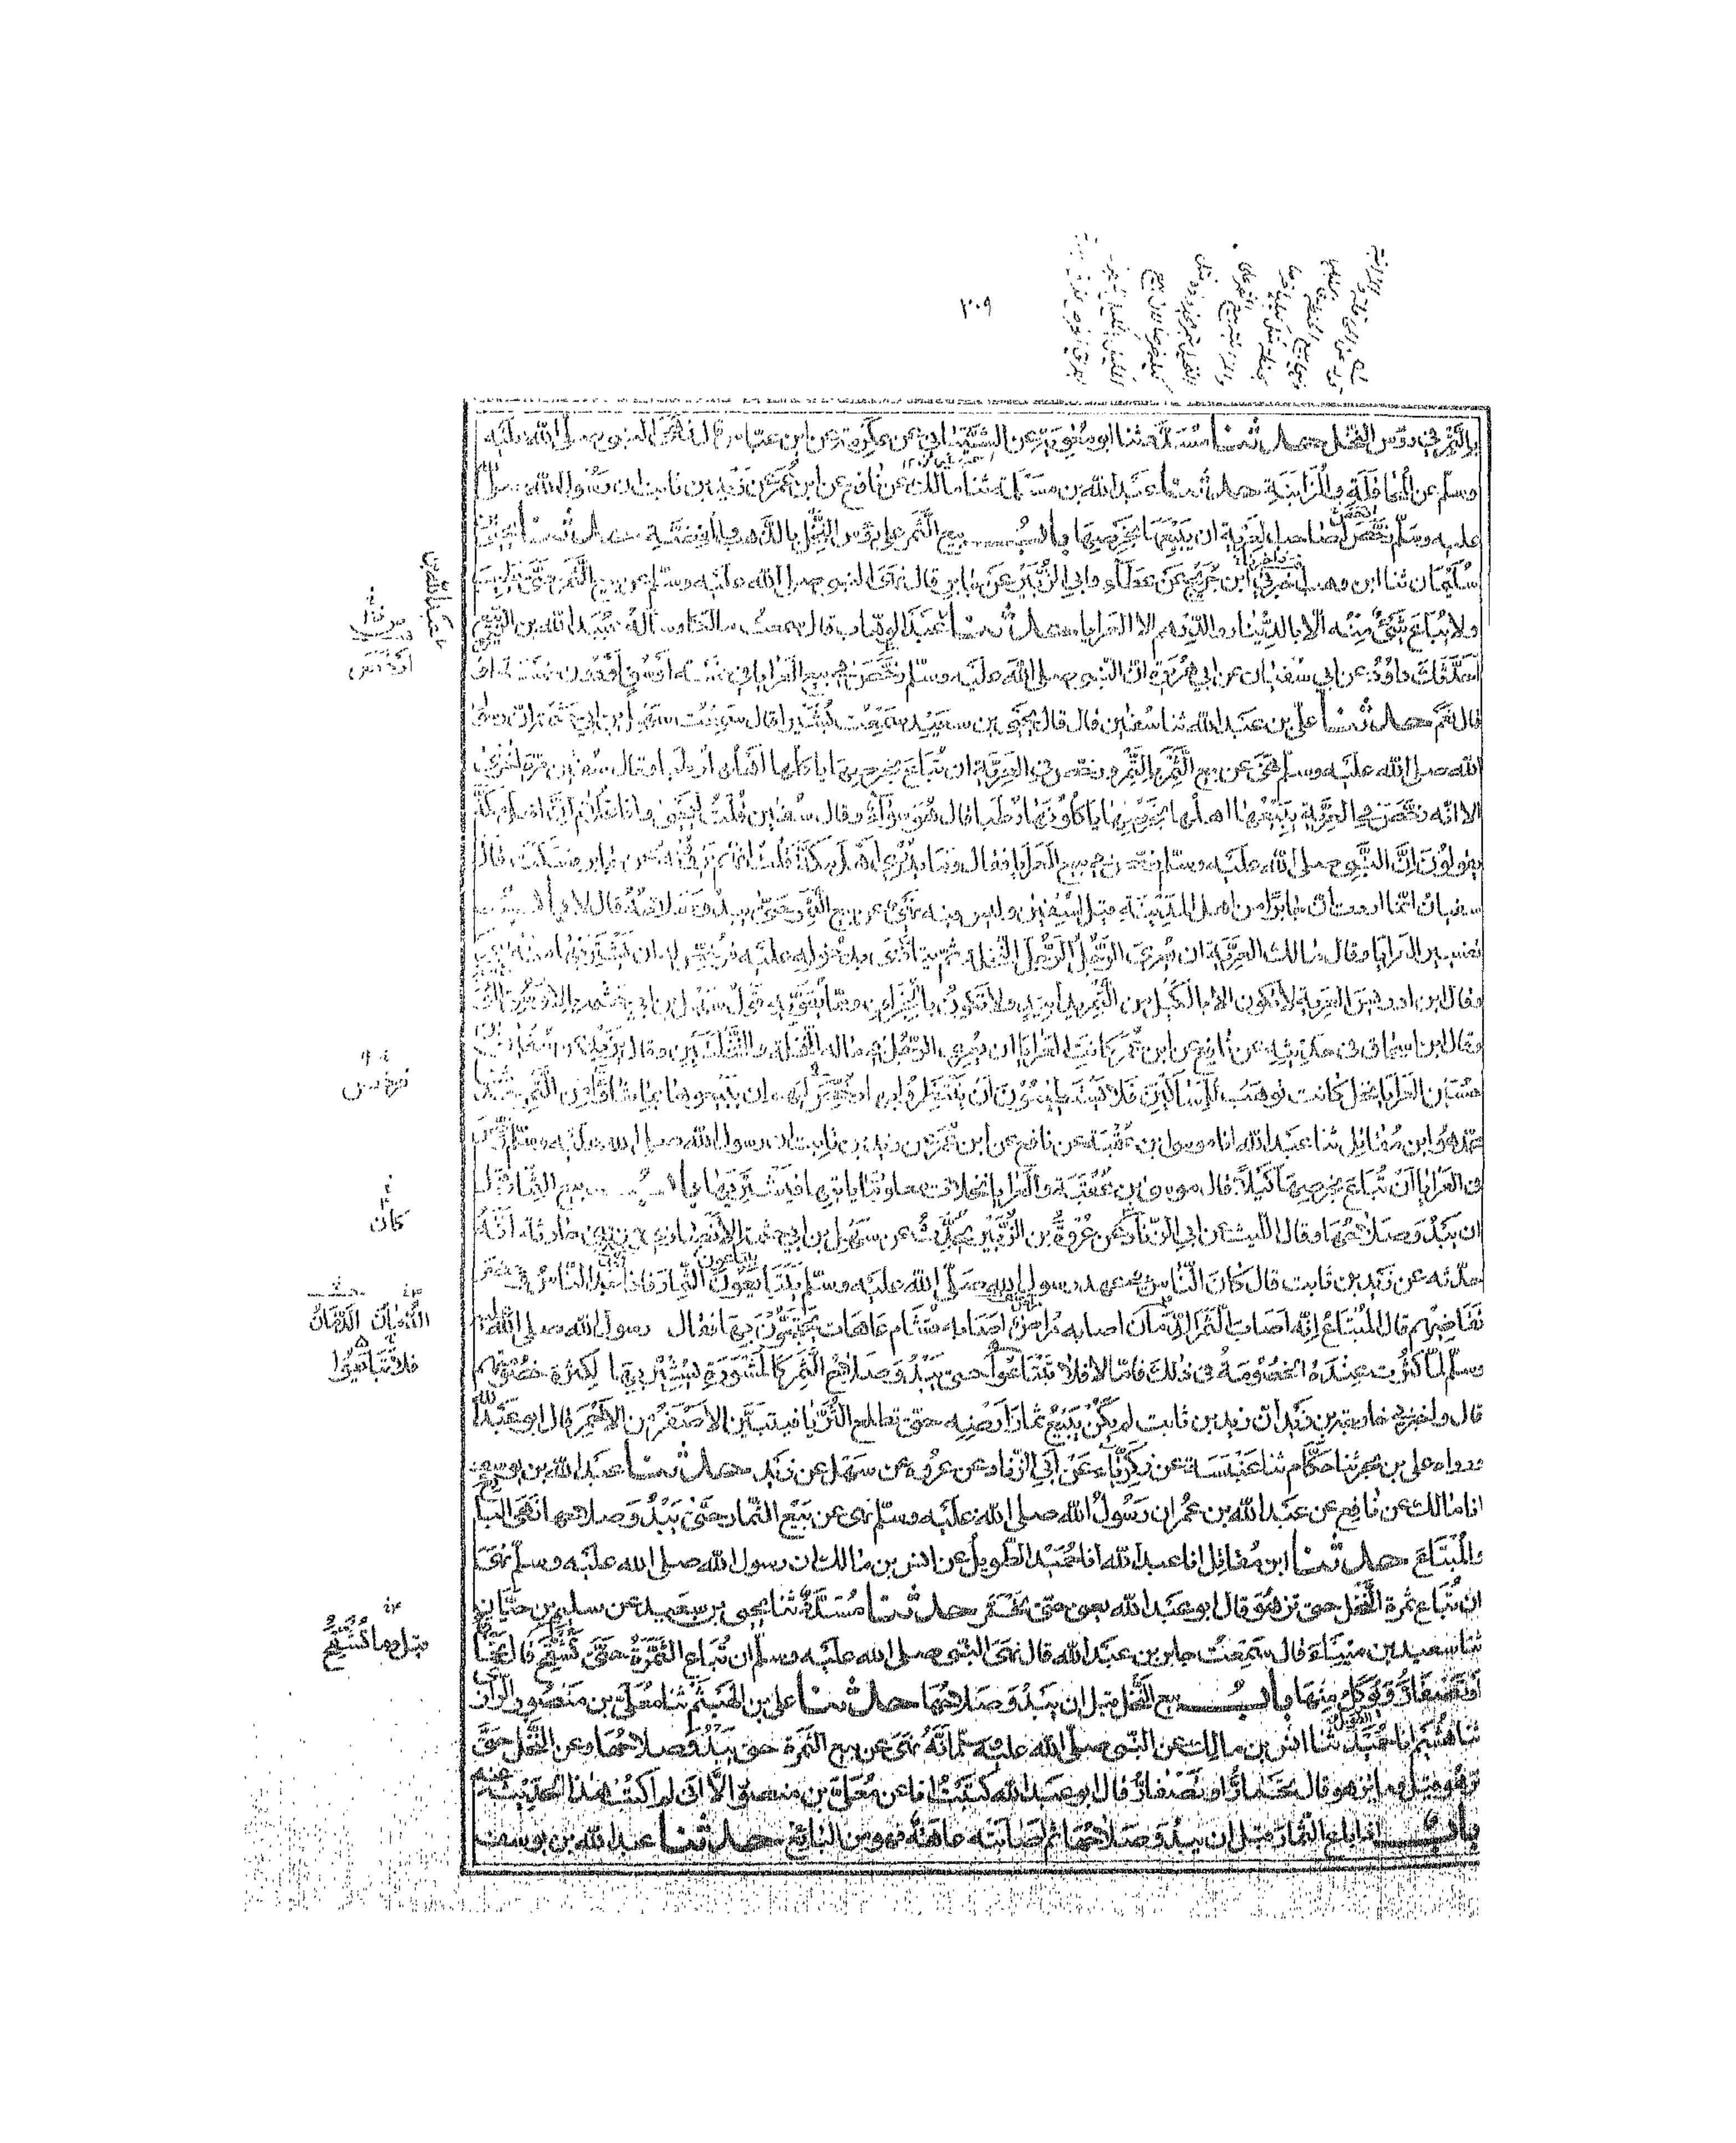 ٢٠٩
بالتمر في رؤس النخل حدثنا مسدد ثنا ابو معوية عن الشيباني عن عكرمة عن ابن عباس قال نهى النبي صلى الله عليه
وسلم عن المحاقلة والمزابنة حدثنا عبد الله بن مسلمة ثنا مالك عن نافع عن ابن عمر عن زيد بن ثابت ان رسول الله صلى
عليه وسلم رخص لصاحب العرية ان يبيعها بخرصها باب بيع الثمر على رؤس النخل بالذهب والفضة حدثنا يحيى بن
سليمان ثنا ابن وهب اخبرني ابن جريج عن عطاء وابي الزبير عن جابر قال نهى النبي صلى الله عليه وسلم عن بيع الثمر حتى يطيب
ولا يباع شئ منه الا بالدينار والدرهم الا العرايا حدثنا عبد الله بن عبد الوهاب قال سمعت مالكا وساله عبيد الله بن الربيع
احدثك داود عن ابي سفيان عن ابي هريرة ان النبي صلى الله عليه وسلم رخص في بيع العرايا في خمسة اوسق او دون خمسة اوسق
قال نعم حدثنا علي بن عبد الله ثنا سفين قال قال يحيى بن سعيد سمعت بشيرا قال سمعت سهل بن ابي حثمة ان رسول
الله صلى الله عليه وسلم نهى عن بيع الثمر بالتمر ورخص في العرية ان تباع بخرصها ياكلها اهلها رطبا وقال سفين مرة اخرى
الا انه رخص في العرية يبيعها اهلها بخرصها ياكلونها رطبا قال هو سواء وقال سفين قلت ليحيى وانا غلام ان اهل مكة
يقولون ان النبي صلى الله عليه وسلم رخص في بيع العرايا فقال وما يدري اهل مكة قلت انهم يروونه عن جابر فسكت قال
سفيان انما اردت ان جابرا من اهل المدينة قيل لسفين وليس فيه نهى عن بيع الثمر حتى يبدو صلاحه قال لا باب
تفسير العرايا وقال مالك العرية ان يعرى الرجل الرجل النخلة ثم يتاذى بدخوله عليه فرخص له ان يشتريها منه بتمر
وقال ابن ادريس العرية لا تكون الا بالكيل من التمر يدا بيد ولا تكون بالجزاف ومما يقويه قول سهل بن ابي حثمة بالاوسق الموسقة
وقال ابن اسحاق في حديثه عن نافع عن ابن عمر كانت العرايا ان يعرى الرجل في ماله النخلة والنخلتين وقال يزيد عن سفين بن
حسين العرايا نخل كانت توهب للمساكين فلا يستطيعون ان ينتظروا بها رخص لهم ان يبيعوها بما شاؤا من التمر حدثنا
محمد هو ابن مقاتل ثنا عبد الله انا موسى بن عقبة عن نافع عن ابن عمر عن زيد بن ثابت ان رسول الله صلى الله عليه وسلم رخص
في العرايا ان تباع بخرصها كيلا قال موسى بن عقبة والعرايا نخلات معلومات ياتيها فيشتريها باب بيع الثمار قبل
ان يبدو صلاحها وقال الليث عن ابي الزناد كان عروة بن الزبير يحدث عن سهل بن ابي حثمة الانصاري من بني حارثة انه
حدثه عن زيد بن ثابت قال كان الناس في عهد رسول الله صلى الله عليه وسلم يبتاعون الثمار فاذا جد الناس وحضر
تقاضيهم قال المبتاع انه اصاب الثمر الدمان اصابه مراض اصابه قشام عاهات يحتجون بها فقال رسول الله صلى الله عليه
وسلم لما كثرت عنده الخصومة في ذلك فاما لا فلا تبتاعوا حتى يبدو صلاح الثمر كالمشورة يشير بها لكثرة خصومتهم
قال واخبرني خارجة بن زيد ان زيد بن ثابت لم يكن يبيع ثمار ارضه حتى تطلع الثريا فيتبين الاصفر من الاحمر قال ابو عبد الله
ورواه علي بن بحر ثنا حكام ثنا عنبسة عن زكرياء عن ابي الزناد عن عروة عن سهل عن زيد حدثنا عبد الله بن يوسف
انا مالك عن نافع عن عبد الله بن عمر ان رسول الله صلى الله عليه وسلم نهى عن بيع الثمار حتى يبدو صلاحها نهى البائع
والمبتاع حدثنا ابن مقاتل انا عبد الله انا حميد الطويل عن انس بن مالك ان رسول الله صلى الله عليه وسلم نهى
ان تباع ثمرة النخل حتى تزهو قال ابو عبد الله يعني حتى تحمر حدثنا مسدد ثنا يحيى بن سعيد عن سليم بن حيان
ثنا سعيد بن ميناء قال سمعت جابر بن عبد الله قال نهى النبي صلى الله عليه وسلم ان تباع الثمرة حتى تشقح قال تحمار
او تصفار ويؤكل منها باب بيع النخل قبل ان يبدو صلاحها حدثنا علي بن الهيثم ثنا معلى بن منصور الرازي
ثنا هشيم انا حميد ثنا انس بن مالك عن النبي صلى الله عليه وسلم انه نهى عن بيع الثمرة حتى يبدو صلاحها وعن النخل حتى
تزهو قيل وما يزهو قال يحمار او يصفار قال ابو عبد الله كتبت انا عن معلى بن منصور الا اني لم اكتب هذا الحديث عنه
باب اذا باع الثمار قبل ان يبدو صلاحها ثم اصابته عاهة فهو من البائع حدثنا عبد الله بن يوسف
كان
الدمان الدمان
فلا تتبايعوا
قيل وما تشقح